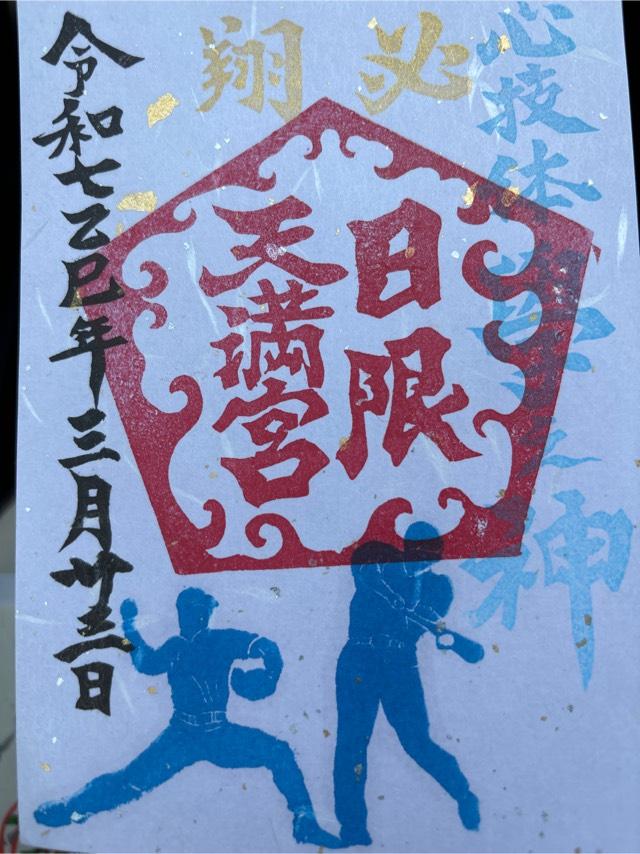 心技体学之神
必翔
日限
天満宮
令和七乙巳年三月廿三日